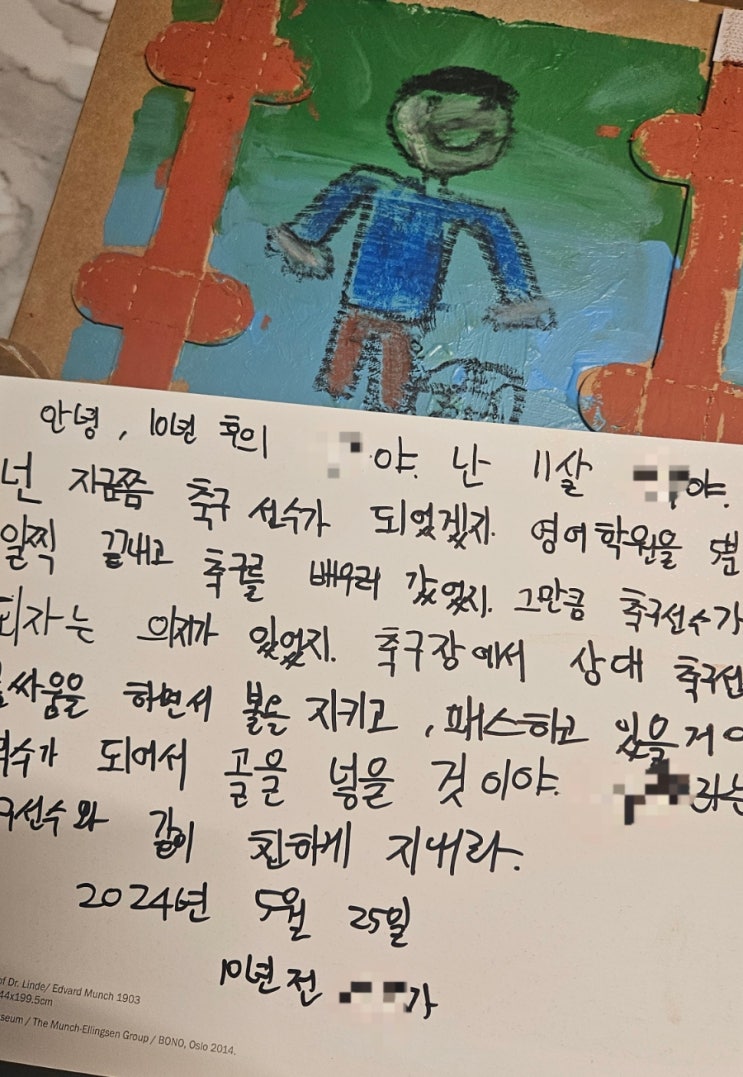 안녕, 10년 후의 야. 난 11살 야.
넌 지금쯤 축구 선수가 되었겠지. 영어학원을 5분
일찍 끝내고 축구를 배우러 갔었지. 그만큼 축구선수가
되자는 의지가 있었지. 축구장에서 상대 축구선
싸움을 하면서 볼을 지키고, 패스하고 있을거야
수가 되어서 골을 넣을 것이야. 라는
구선수와 같이 친하게 지내라.
2024년 5월 25일
10년 전 가
of Dr. Linde/ Edvard Munch 1903
44x199.5cm
seum / The Munch-Ellingsen Group / BONO, Oslo 2014.